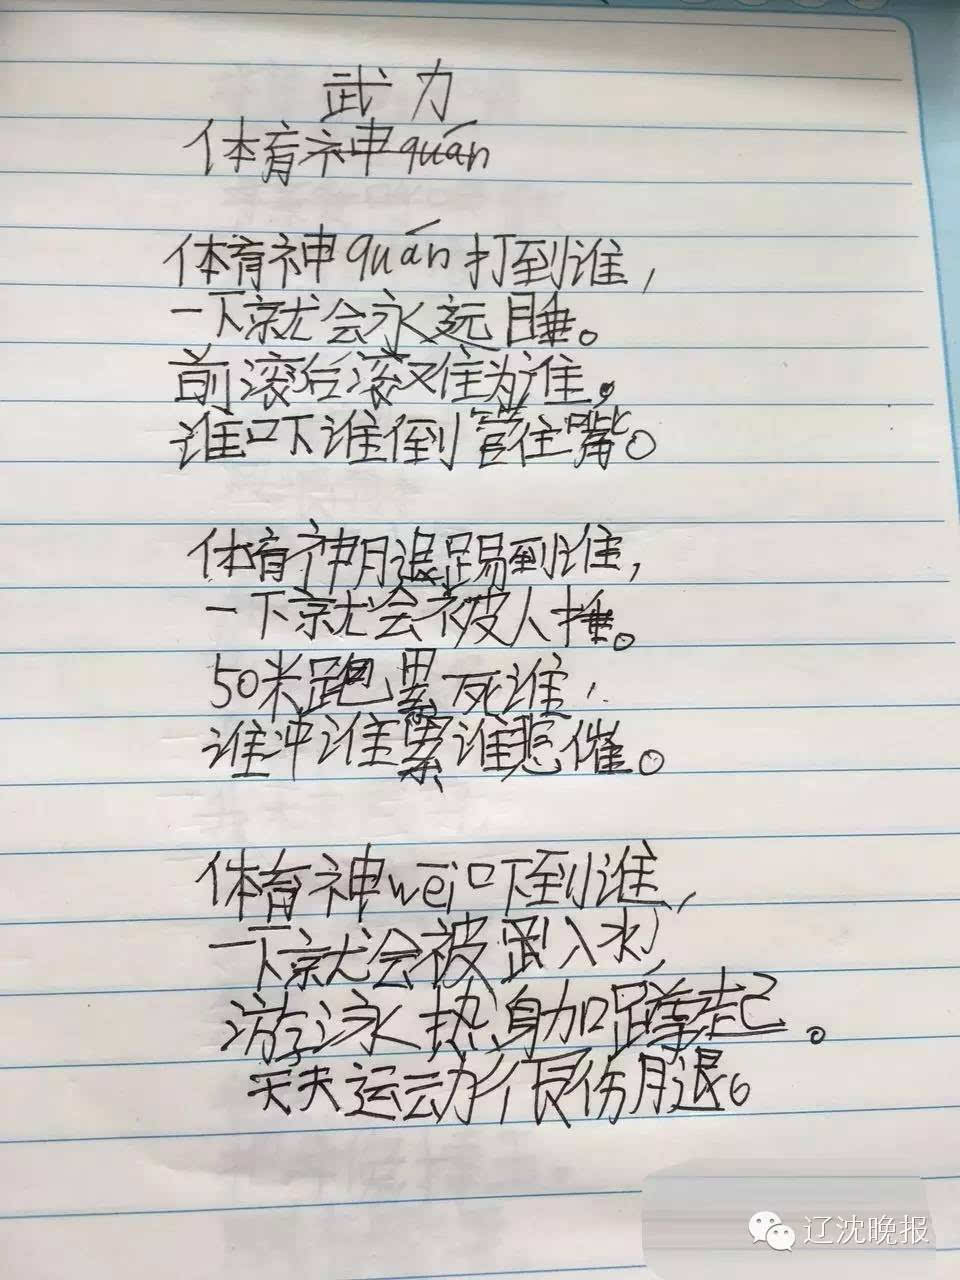 武力
体育神quán
体育神quán打到谁，
一下就会永远睡。
前滚后滚又难为谁。
谁吓谁倒管住嘴。
体育神腿踢到谁，
一下就会被人捶。
50米跑累死谁，
谁冲谁累谁悲催。
体育神wēi吓到谁，
一下就会被踢入水，
游泳热身加蹲起。
天天运动很伤腿。
辽沈晚报